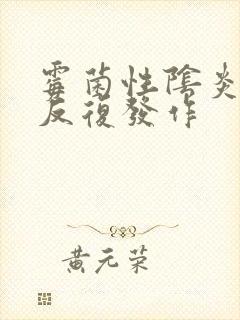 霉菌性陰炎
反復發作
黄元荣